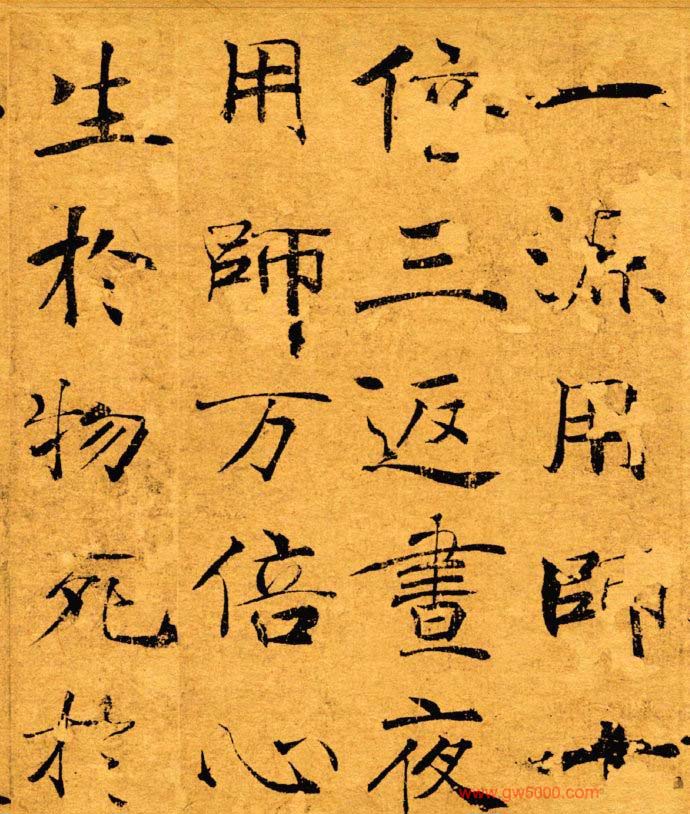 一源用師十
倍三返晝夜
用師万倍心
生於物死於
www.gw5000.com